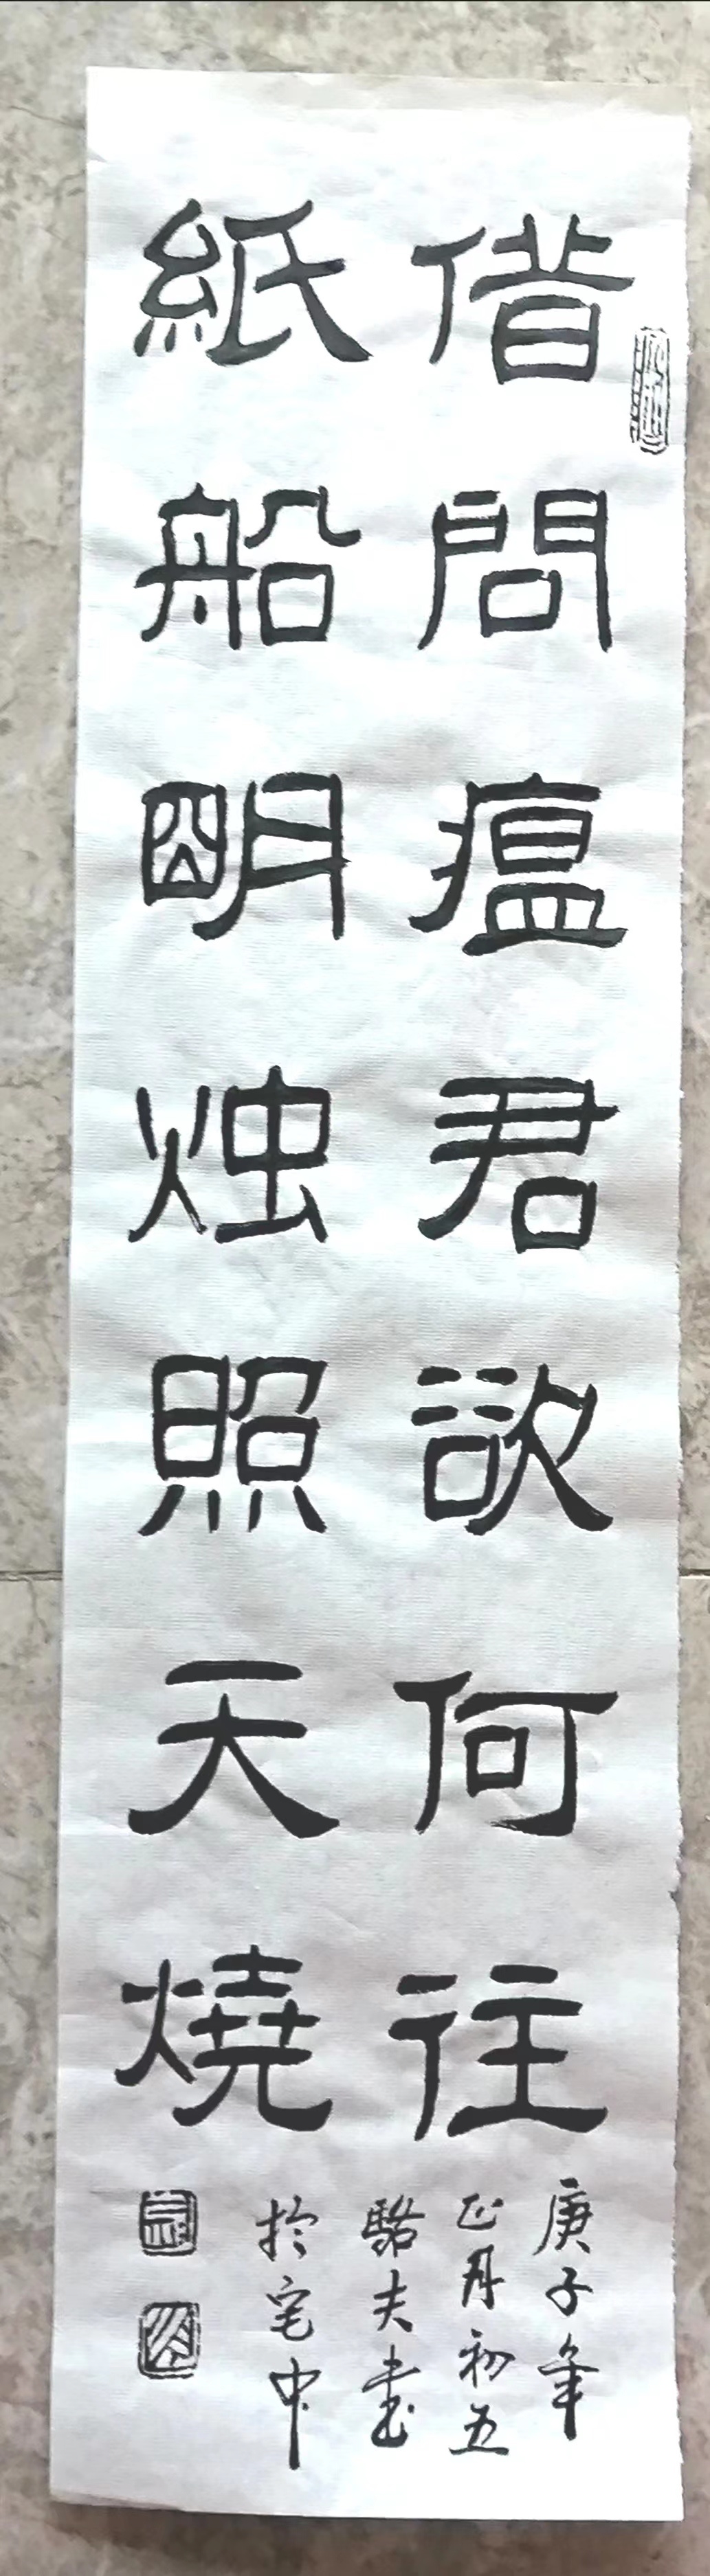 借問瘟君欲何往
紙船明烛照天燒
庚子年
正月初五
駱夫書
於宅中